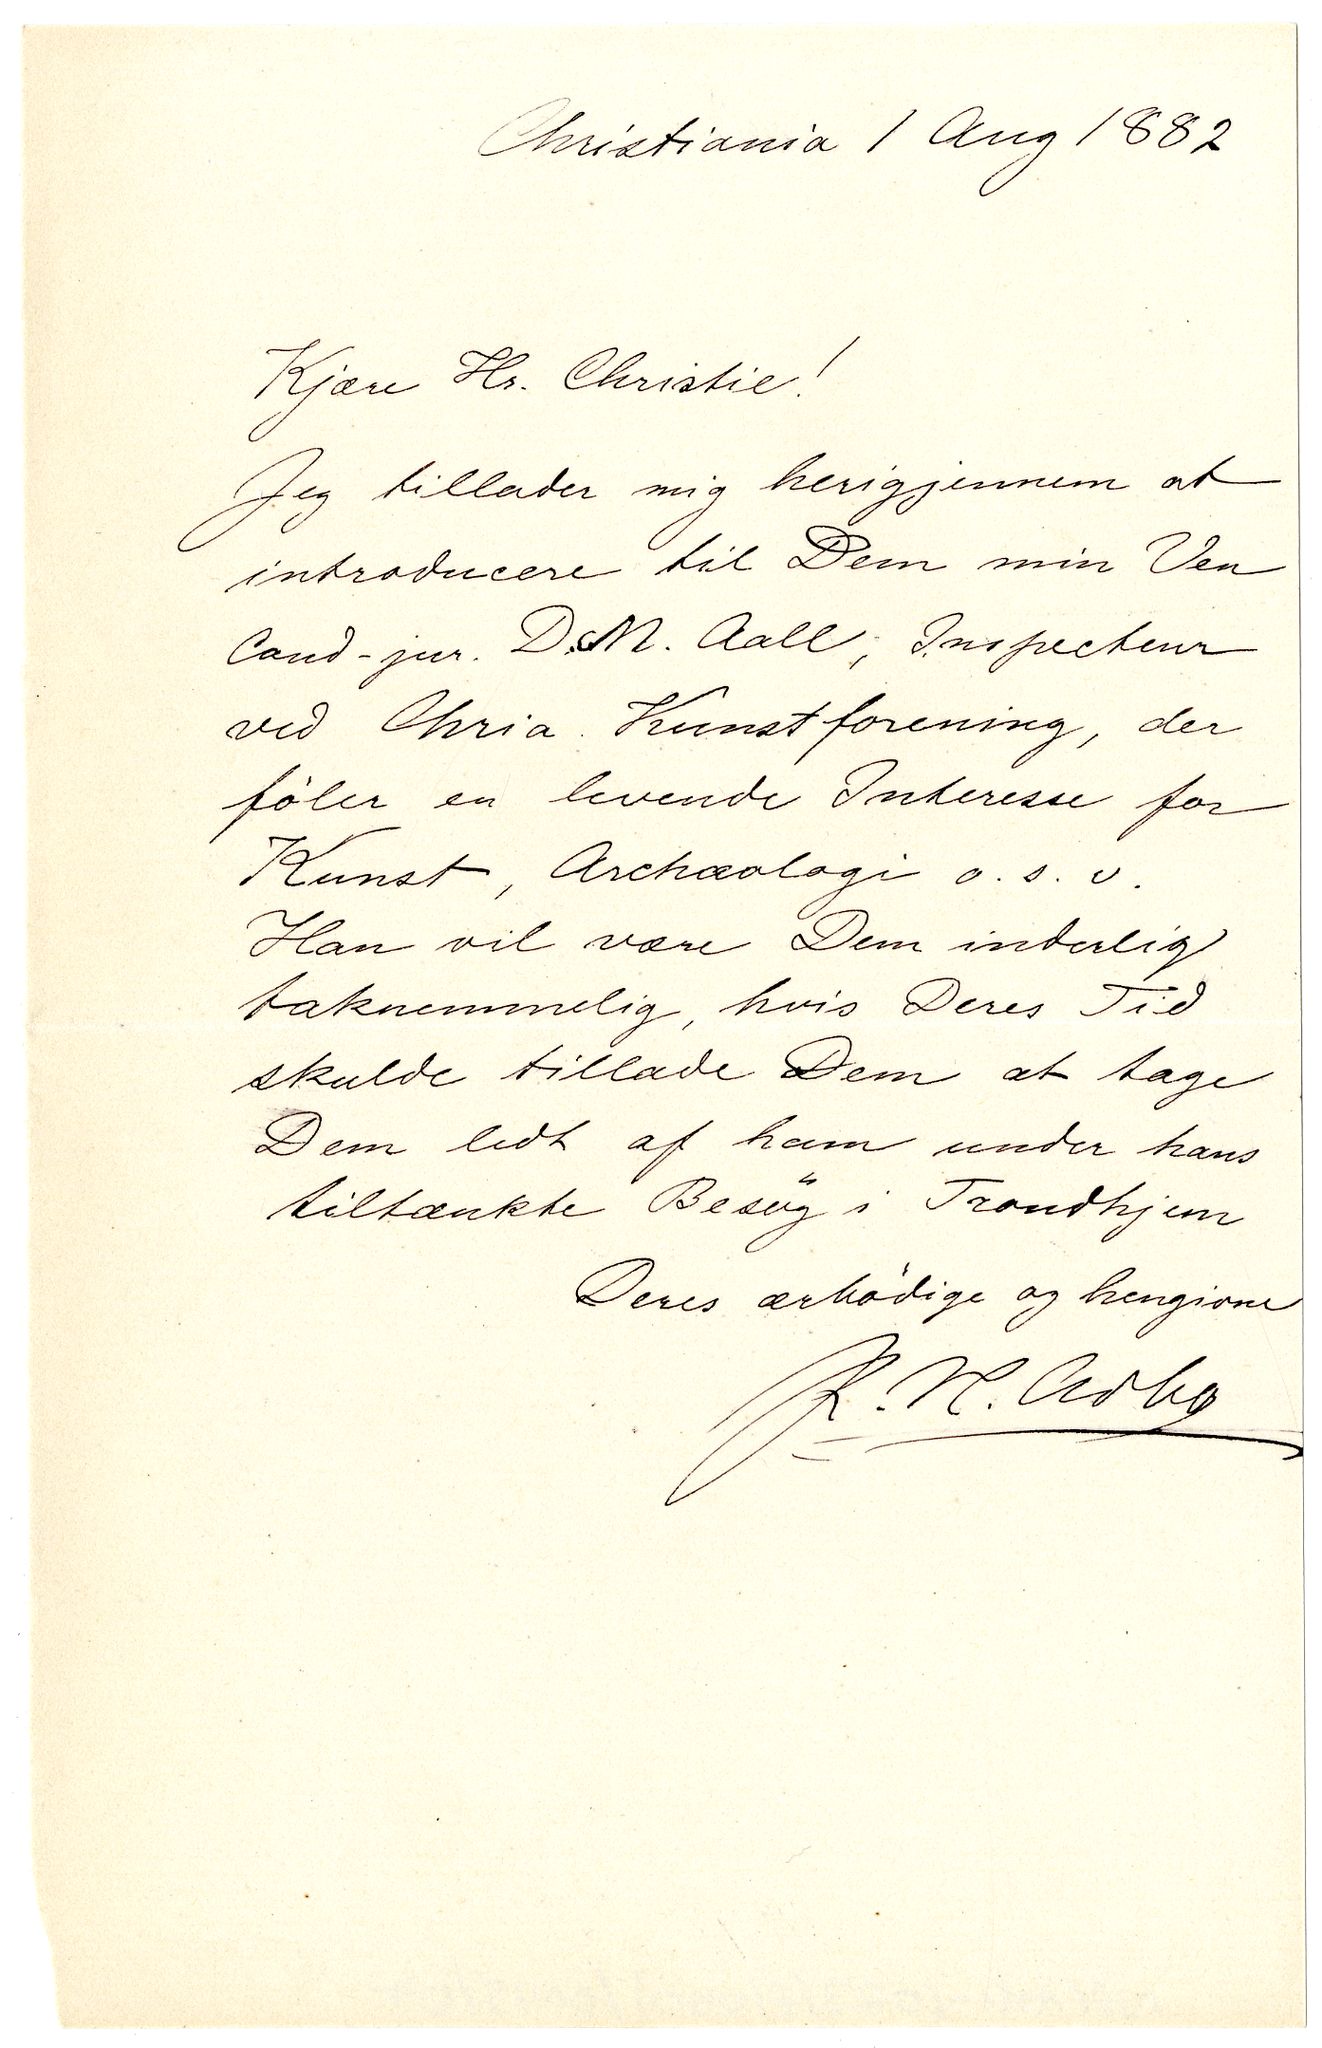 Christiania 1 Aug 1882
Kjære Hr. Christie!
Jeg tillader mig herigjennem at
introducere til Dem min Ven
Cand-jur. D.M. Aall, Inspecteur
ved Chria. Kunstforening, der
föler en levende Interesse for
Kunst, Archæologi o. s. v.
Han vil være Dem inderlig
taknemmelig, hvis Deres Tid
skulde tillade Dem at tage
Dem lidt af ham under hans
tiltænkte Besög i Trondhjem
Deres ærbödige og hengivne